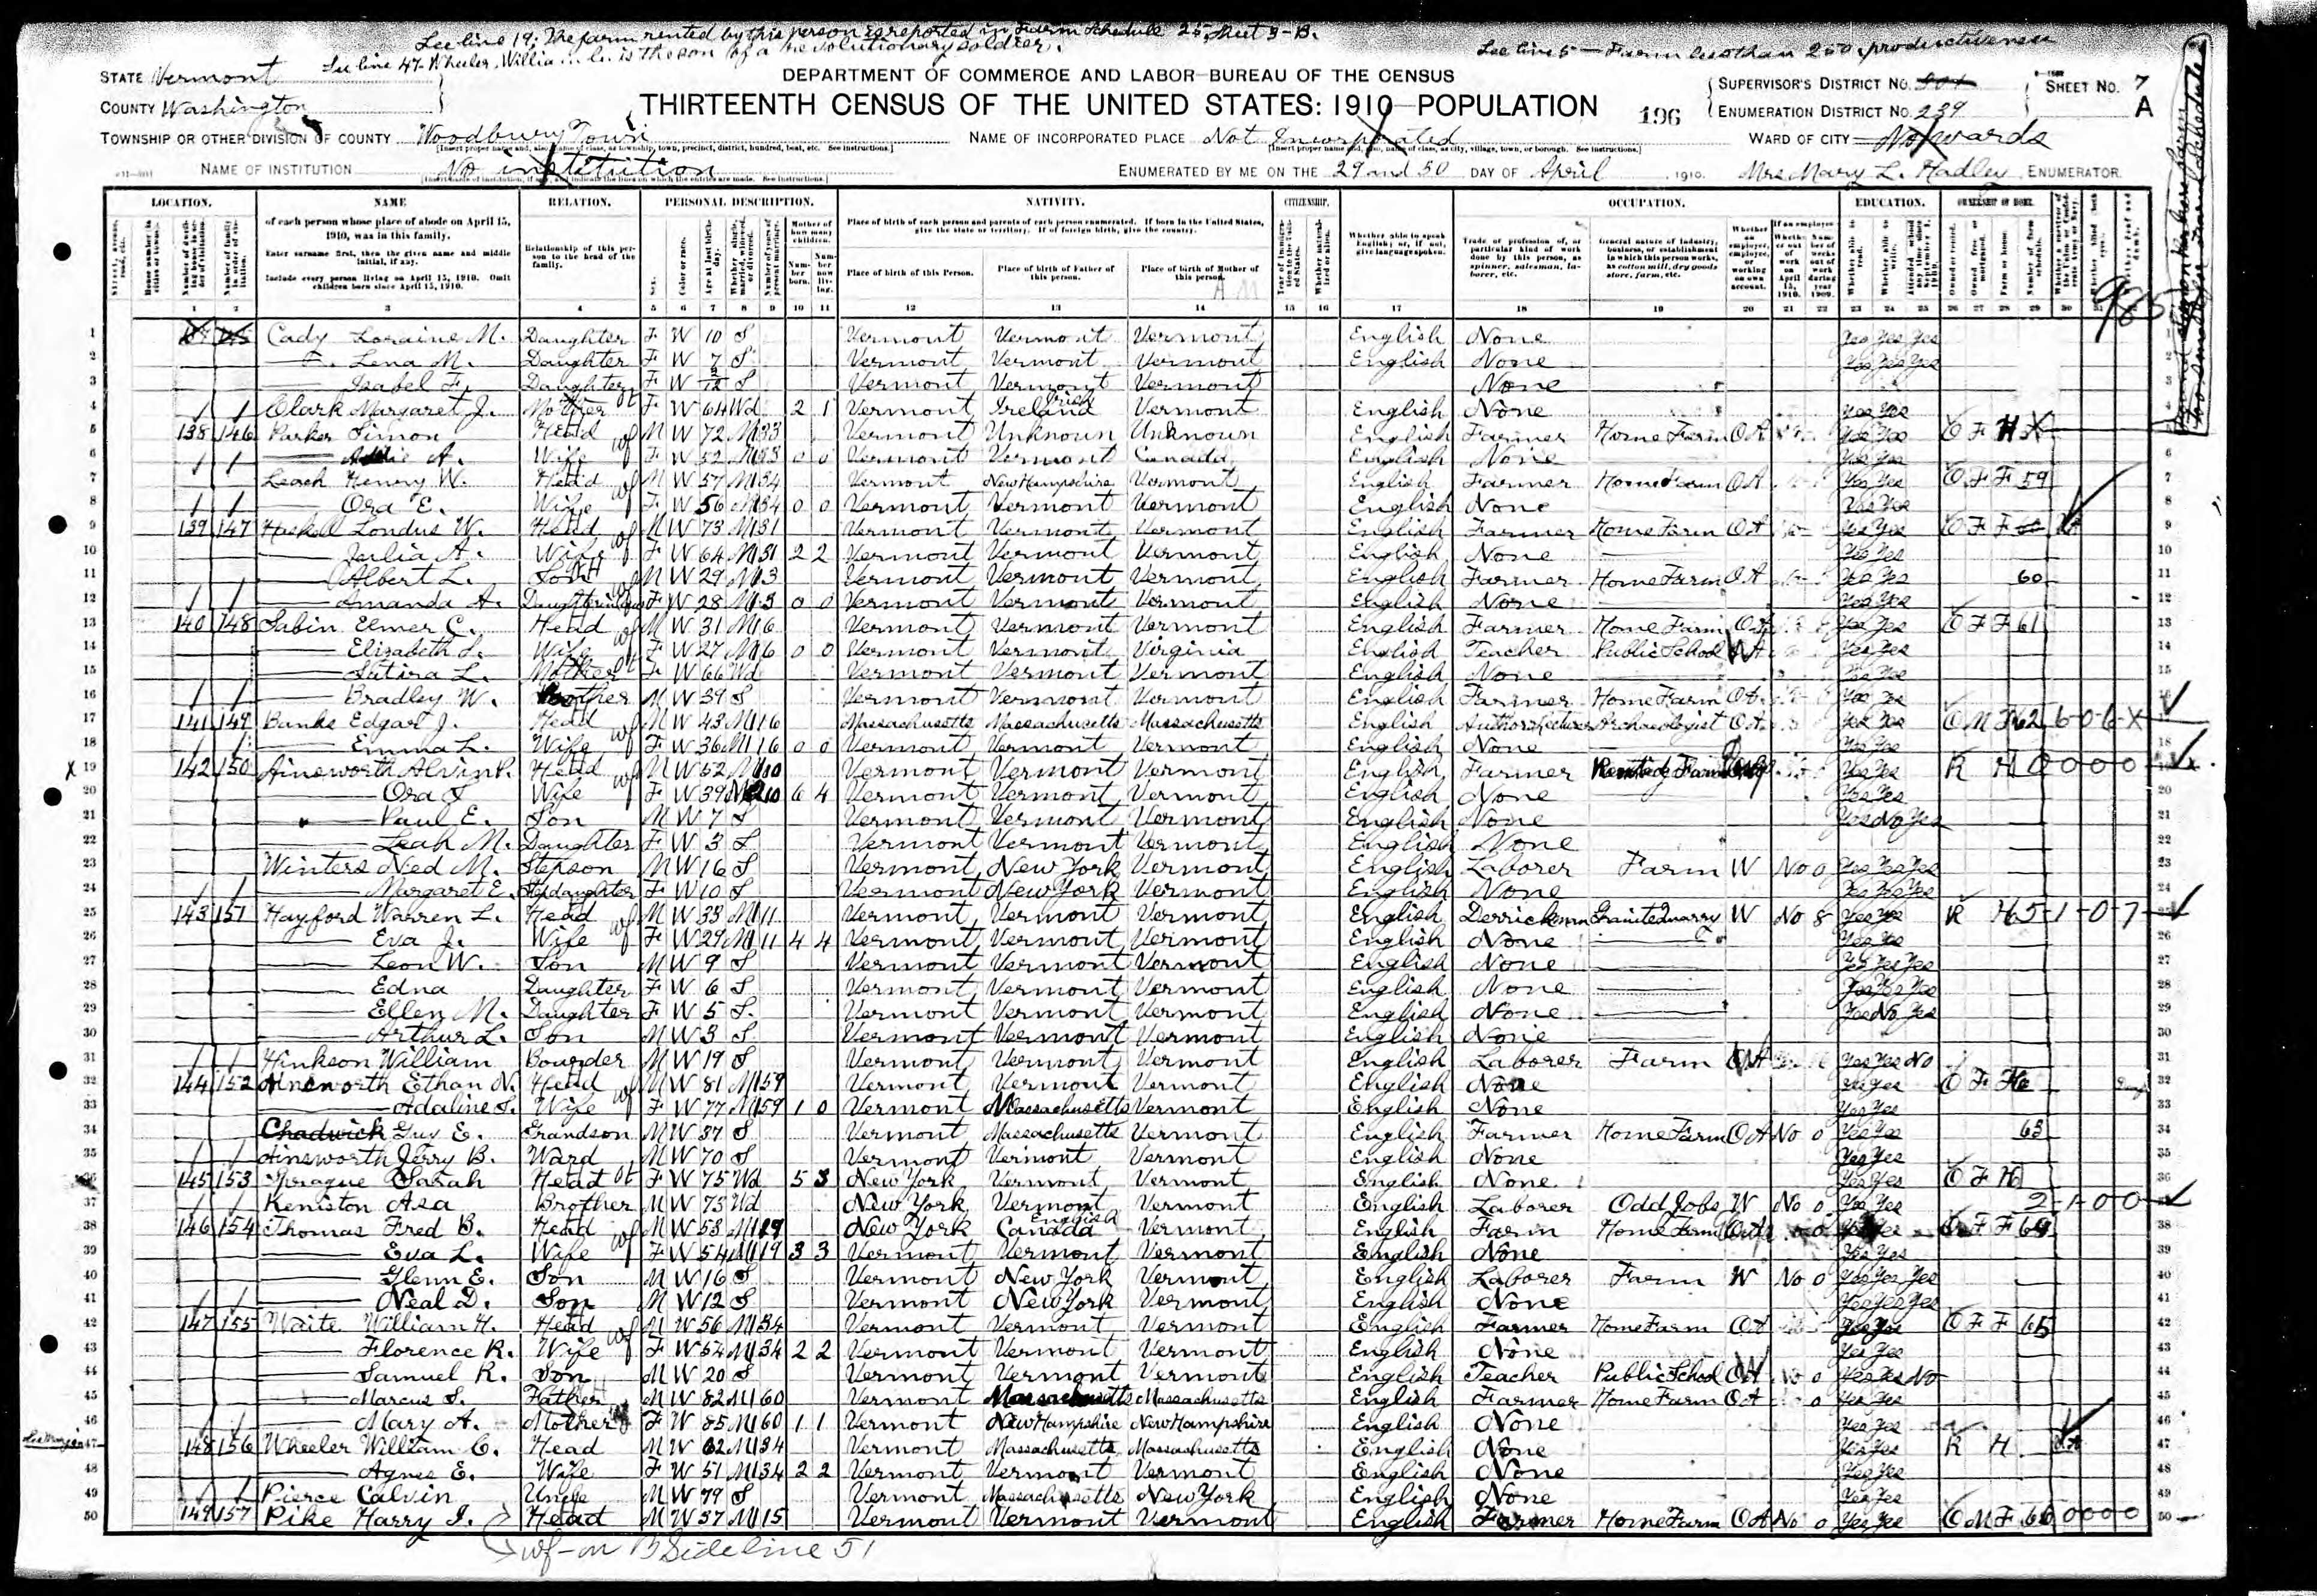 See line 19; The farm rented by this person is reported in Farm Schedule 25, Sheet 3-B.
See line 47. Wheeler, William C. is the son of a Revolutionary soldier.
See line 5 — Farm less than 250 productiveness
STATE Vermont
COUNTY Washington
TOWNSHIP OR OTHER DIVISION OF COUNTY Woodbury Town
NAME OF INSTITUTION No institution
DEPARTMENT OF COMMERCE AND LABOR—BUREAU OF THE CENSUS
THIRTEENTH CENSUS OF THE UNITED STATES: 1910—POPULATION
196
NAME OF INCORPORATED PLACE Not Incorporated
ENUMERATED BY ME ON THE 29 and 30 DAY OF April, 1910.
SUPERVISOR'S DISTRICT NO.
ENUMERATION DISTRICT NO. 239
SHEET NO. 7 A
WARD OF CITY No wards
Mrs Mary L. Hadley, ENUMERATOR.
985
LOCATION. NAME RELATION. PERSONAL DESCRIPTION. NATIVITY. CITIZENSHIP. OCCUPATION. EDUCATION. OWNERSHIP OF HOME.
of each person whose place of abode on April 15, 1910, was in this family.
Enter surname first, then the given name and middle initial, if any.
Include every person living on April 15, 1910. Omit children born since April 15, 1910.
Relationship of this person to the head of the family.
Place of birth of each person and parents of each person enumerated. If born in the United States, give the state or territory. If of foreign birth, give the country.
Place of birth of this Person. Place of birth of Father of this person. Place of birth of Mother of this person.
1 2 3 4 5 6 7 8 9 10 11 12 13 14 15 16 17 18 19 20 21 22 23 24 25 26 27 28 29 30
1 Cady Loraine M. Daughter F W 10 S Vermont Vermont Vermont English None Yes Yes Yes
2 Lena M. Daughter F W 7 S Vermont Vermont Vermont English None Yes Yes Yes
3 Isabel F. Daughter F W S Vermont Vermont Vermont None
4 Clark Margaret J. Mother F W 64 Wd 2 1 Vermont Ireland Vermont English None Yes Yes
5 138 146 Parker Simon Head M W 72 M1 33 Vermont Unknown Unknown English Farmer Home Farm OA Yes Yes O F H
6 A. Wife F W 52 M1 33 0 0 Vermont Vermont Canada English None Yes Yes
7 Leach Henry W. Head M W 57 M1 34 Vermont New Hampshire Vermont English Farmer Home Farm OA Yes Yes O F F 59
8 Ora E. Wife F W 56 M1 34 0 0 Vermont Vermont Vermont English None Yes Yes
9 139 147 Haskell Londus W. Head M W 73 M1 31 Vermont Vermont Vermont English Farmer Home Farm OA Yes Yes O F F
10 Julia A. Wife F W 64 M1 31 2 2 Vermont Vermont Vermont English None Yes Yes
11 Albert L. Son M W 29 M1 3 Vermont Vermont Vermont English Farmer Home Farm OA Yes Yes 60
12 Amanda A. Daughter in law F W 28 M1 3 0 0 Vermont Vermont Vermont English None Yes Yes
13 140 148 Sabin Elmer C. Head M W 31 M1 6 Vermont Vermont Vermont English Farmer Home Farm OA Yes Yes O F F 61
14 Elizabeth L. Wife F W 27 M1 6 0 0 Vermont Vermont Virginia English Teacher Public School W Yes Yes
15 Lutira L. Mother F W 66 Wd Vermont Vermont Vermont English None Yes Yes
16 Bradley W. Brother M W 39 S Vermont Vermont Vermont English Farmer Home Farm OA Yes Yes
17 141 149 Banks Edgar J. Head M W 43 M1 16 Massachusetts Massachusetts Massachusetts English Author & Lecturer Archaeologist OA Yes Yes O M F 62 6-0-6-X
18 Emma L. Wife F W 36 M1 16 0 0 Vermont Vermont Vermont English None Yes Yes
19 142 150 Ainsworth Alvin P. Head M W 52 M 10 Vermont Vermont Vermont English Farmer Rented Farm Yes Yes R H 0 0 0 0
20 Ora J Wife F W 39 M2 10 6 4 Vermont Vermont Vermont English None Yes Yes
21 Paul E. Son M W 7 S Vermont Vermont Vermont English None Yes No Yes
22 Leah M. Daughter F W 3 S Vermont Vermont Vermont English None
23 Winters Ned M. Stepson M W 16 S Vermont New York Vermont English Laborer Farm W No 0 Yes Yes Yes
24 Margaret E. Stepdaughter F W 10 S Vermont New York Vermont English None Yes Yes Yes
25 143 151 Hayford Warren L. Head M W 33 M1 11 Vermont Vermont Vermont English Derrickman Granite Quarry W No 8 Yes Yes R H 5-1-0-7
26 Eva J. Wife F W 29 M1 11 4 4 Vermont Vermont Vermont English None Yes Yes
27 Leon W. Son M W 9 S Vermont Vermont Vermont English None Yes Yes Yes
28 Edna Daughter F W 6 S Vermont Vermont Vermont English None Yes Yes Yes
29 Ellen M. Daughter F W 5 S Vermont Vermont Vermont English None Yes No Yes
30 Arthur L. Son M W 3 S Vermont Vermont Vermont English None
31 Hinkson William Boarder M W 19 S Vermont Vermont Vermont English Laborer Farm Yes Yes No
32 144 152 Ainsworth Ethan N. Head M W 81 M1 59 Vermont Vermont Vermont English None Yes Yes O F H
33 Adaline S. Wife F W 77 M1 59 1 0 Vermont Massachusetts Vermont English None Yes Yes
34 Chadwick Guy E. Grandson M W 37 S Vermont Massachusetts Vermont English Farmer Home Farm OA No 0 Yes Yes 63
35 Ainsworth Jerry B. Ward M W 70 S Vermont Vermont Vermont English None Yes Yes
36 145 153 Sprague Sarah Head F W 75 Wd 5 3 New York Vermont Vermont English None Yes Yes O F H
37 Keniston Asa Brother M W 73 Wd New York Vermont Vermont English Laborer Odd Jobs W No 0 Yes Yes 2-1-0-0
38 146 154 Thomas Fred B. Head M W 53 M1 19 New York Canada English Vermont English Farm Home Farm OA 0 Yes Yes O F F 64
39 Eva L. Wife F W 54 M1 19 3 3 Vermont Vermont Vermont English None Yes Yes
40 Glenn E. Son M W 16 S Vermont New York Vermont English Laborer Farm W No 0 Yes Yes Yes
41 Neal D. Son M W 12 S Vermont New York Vermont English None Yes Yes Yes
42 147 155 Waite William H. Head M W 56 M1 34 Vermont Vermont Vermont English Farmer Home Farm OA Yes Yes O F F 65
43 Florence R. Wife F W 54 M1 34 2 2 Vermont Vermont Vermont English None Yes Yes
44 Samuel R. Son M W 20 S Vermont Vermont Vermont English Teacher Public School W No 0 Yes Yes No
45 Marcus S. Father M W 82 M1 60 Vermont Massachusetts Massachusetts English Farmer Home Farm OA 0 Yes Yes
46 Mary A. Mother F W 85 M1 60 1 1 Vermont New Hampshire New Hampshire English None Yes Yes
47 148 156 Wheeler William C. Head M W 62 M1 34 Vermont Massachusetts Massachusetts English None Yes Yes R H
48 Agnes E. Wife F W 51 M1 34 2 2 Vermont Vermont Vermont English None Yes Yes
49 Pierce Calvin Uncle M W 79 S Vermont Massachusetts New York English None Yes Yes
50 149 157 Pike Harry I. Head M W 37 M1 15 Vermont Vermont Vermont English Farmer Home Farm OA No 0 Yes Yes O M F 66 0 0 0 0
wf - on B Side line 51